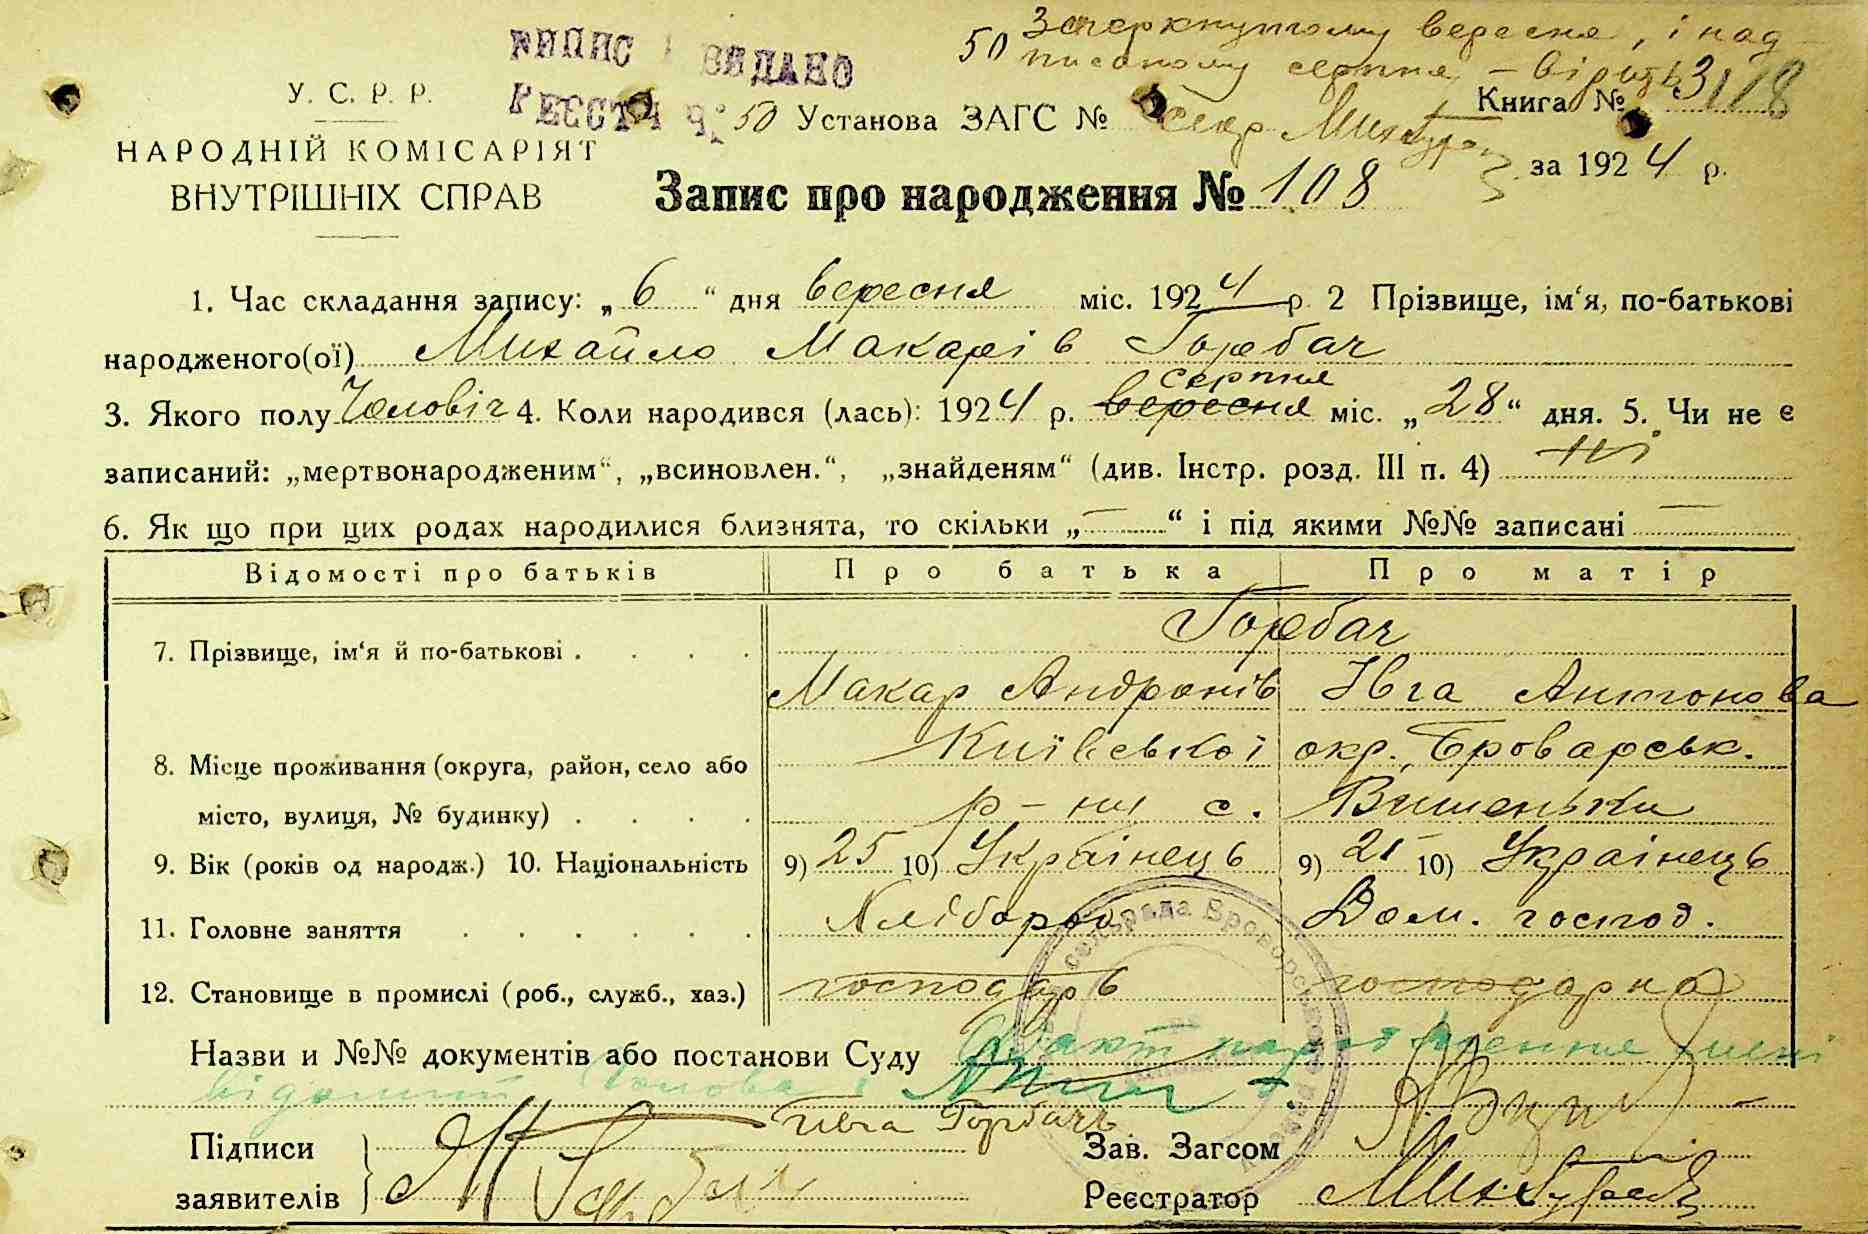 ВИПИС ВИДАНО
РЕЄСТР Ч. 50
50 Зачеркнутому вересня, і над-
писаному серпня – вірить
Секр
У. С. Р. Р.
НАРОДНІЙ КОМІСАРІЯТ
ВНУТРІШНІХ СПРАВ
Установа ЗАГС №
Книга № 3118
за 1924 р.
Запис про народження № 108
1. Час складання запису: „6“ дня вересня міс. 1924 р. 2 Прізвище, ім‘я, по-батькові
народженого(ої) Михайло Макарів Горбач
серпня
3. Якого полу Чоловіч 4. Коли народився (лась): 1924 р. вересня міс. „28“ дня. 5. Чи не є
записаний: „мертвонародженим“, „всиновлен.“, „знайденям“ (див. Інстр. розд. III п. 4) ні
6. Як що при цих родах народилися близнята, то скільки „—“ і під якими №№ записані —
Відомості про батьків Про батька Про матір
Горбач
7. Прізвище, ім‘я й по-батькові . . . .
Макар Андронів Івга Антонова
Київської окр. Броварськ.
8. Місце проживання (округа, район, село або
місто, вулиця, № будинку) . . . . р-ну с. Вишеньки
9. Вік (років од народж.) 10. Національність 9) 25 10) Українець 9) 21 10) Українець
11. Головне заняття . . . . . . Хлібороб Дом. господ.
12. Становище в промислі (роб., служб., хаз.) господарь господарка
Назви и №№ документів або постанови Суду Факт народження мені
відомий Голова
Підписи
заявителів
Івга Горбачь
Горбач
Зав. Загсом
Реєстратор
сельрада Броворського